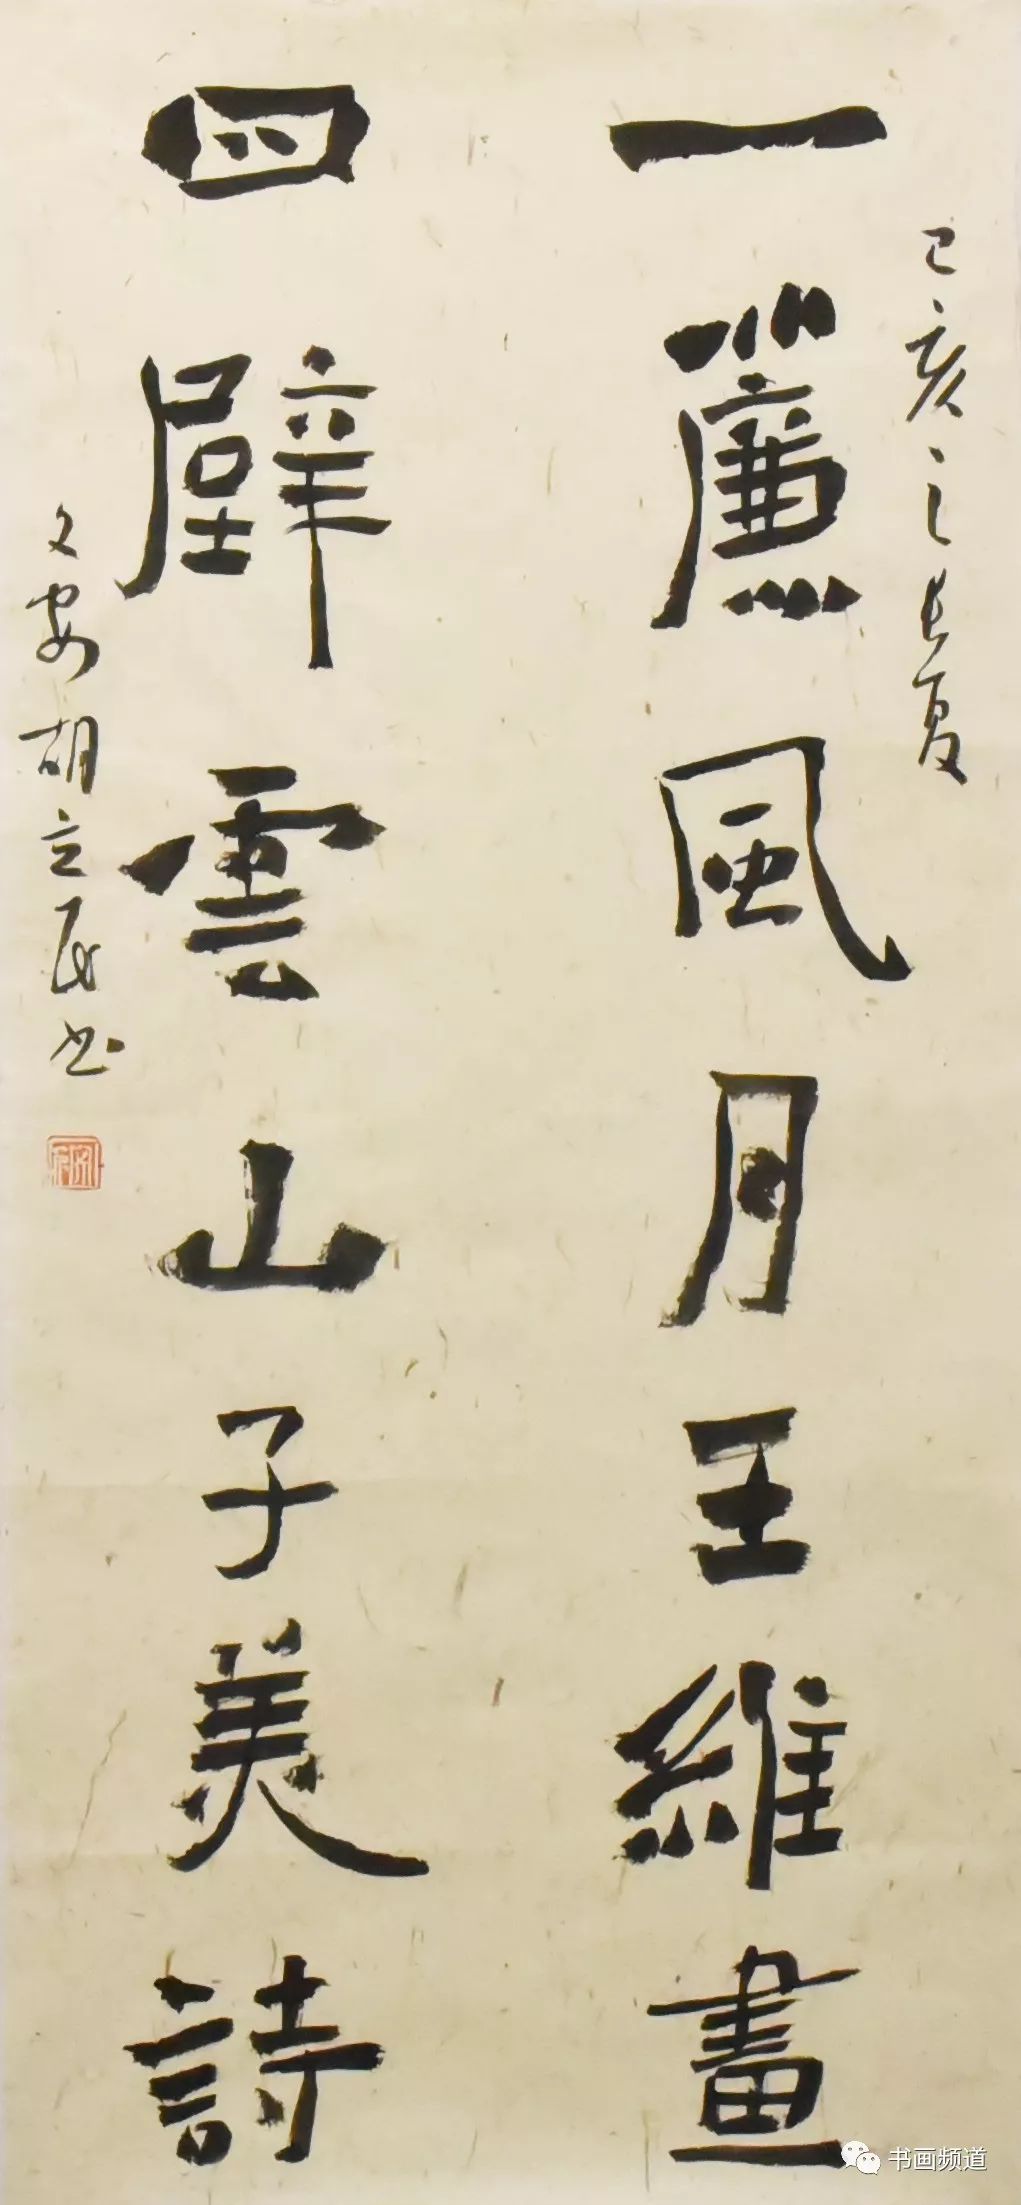 己亥之长夏
一簾風月王維畫
四壁雲山子美詩
文安胡立民书
书画频道